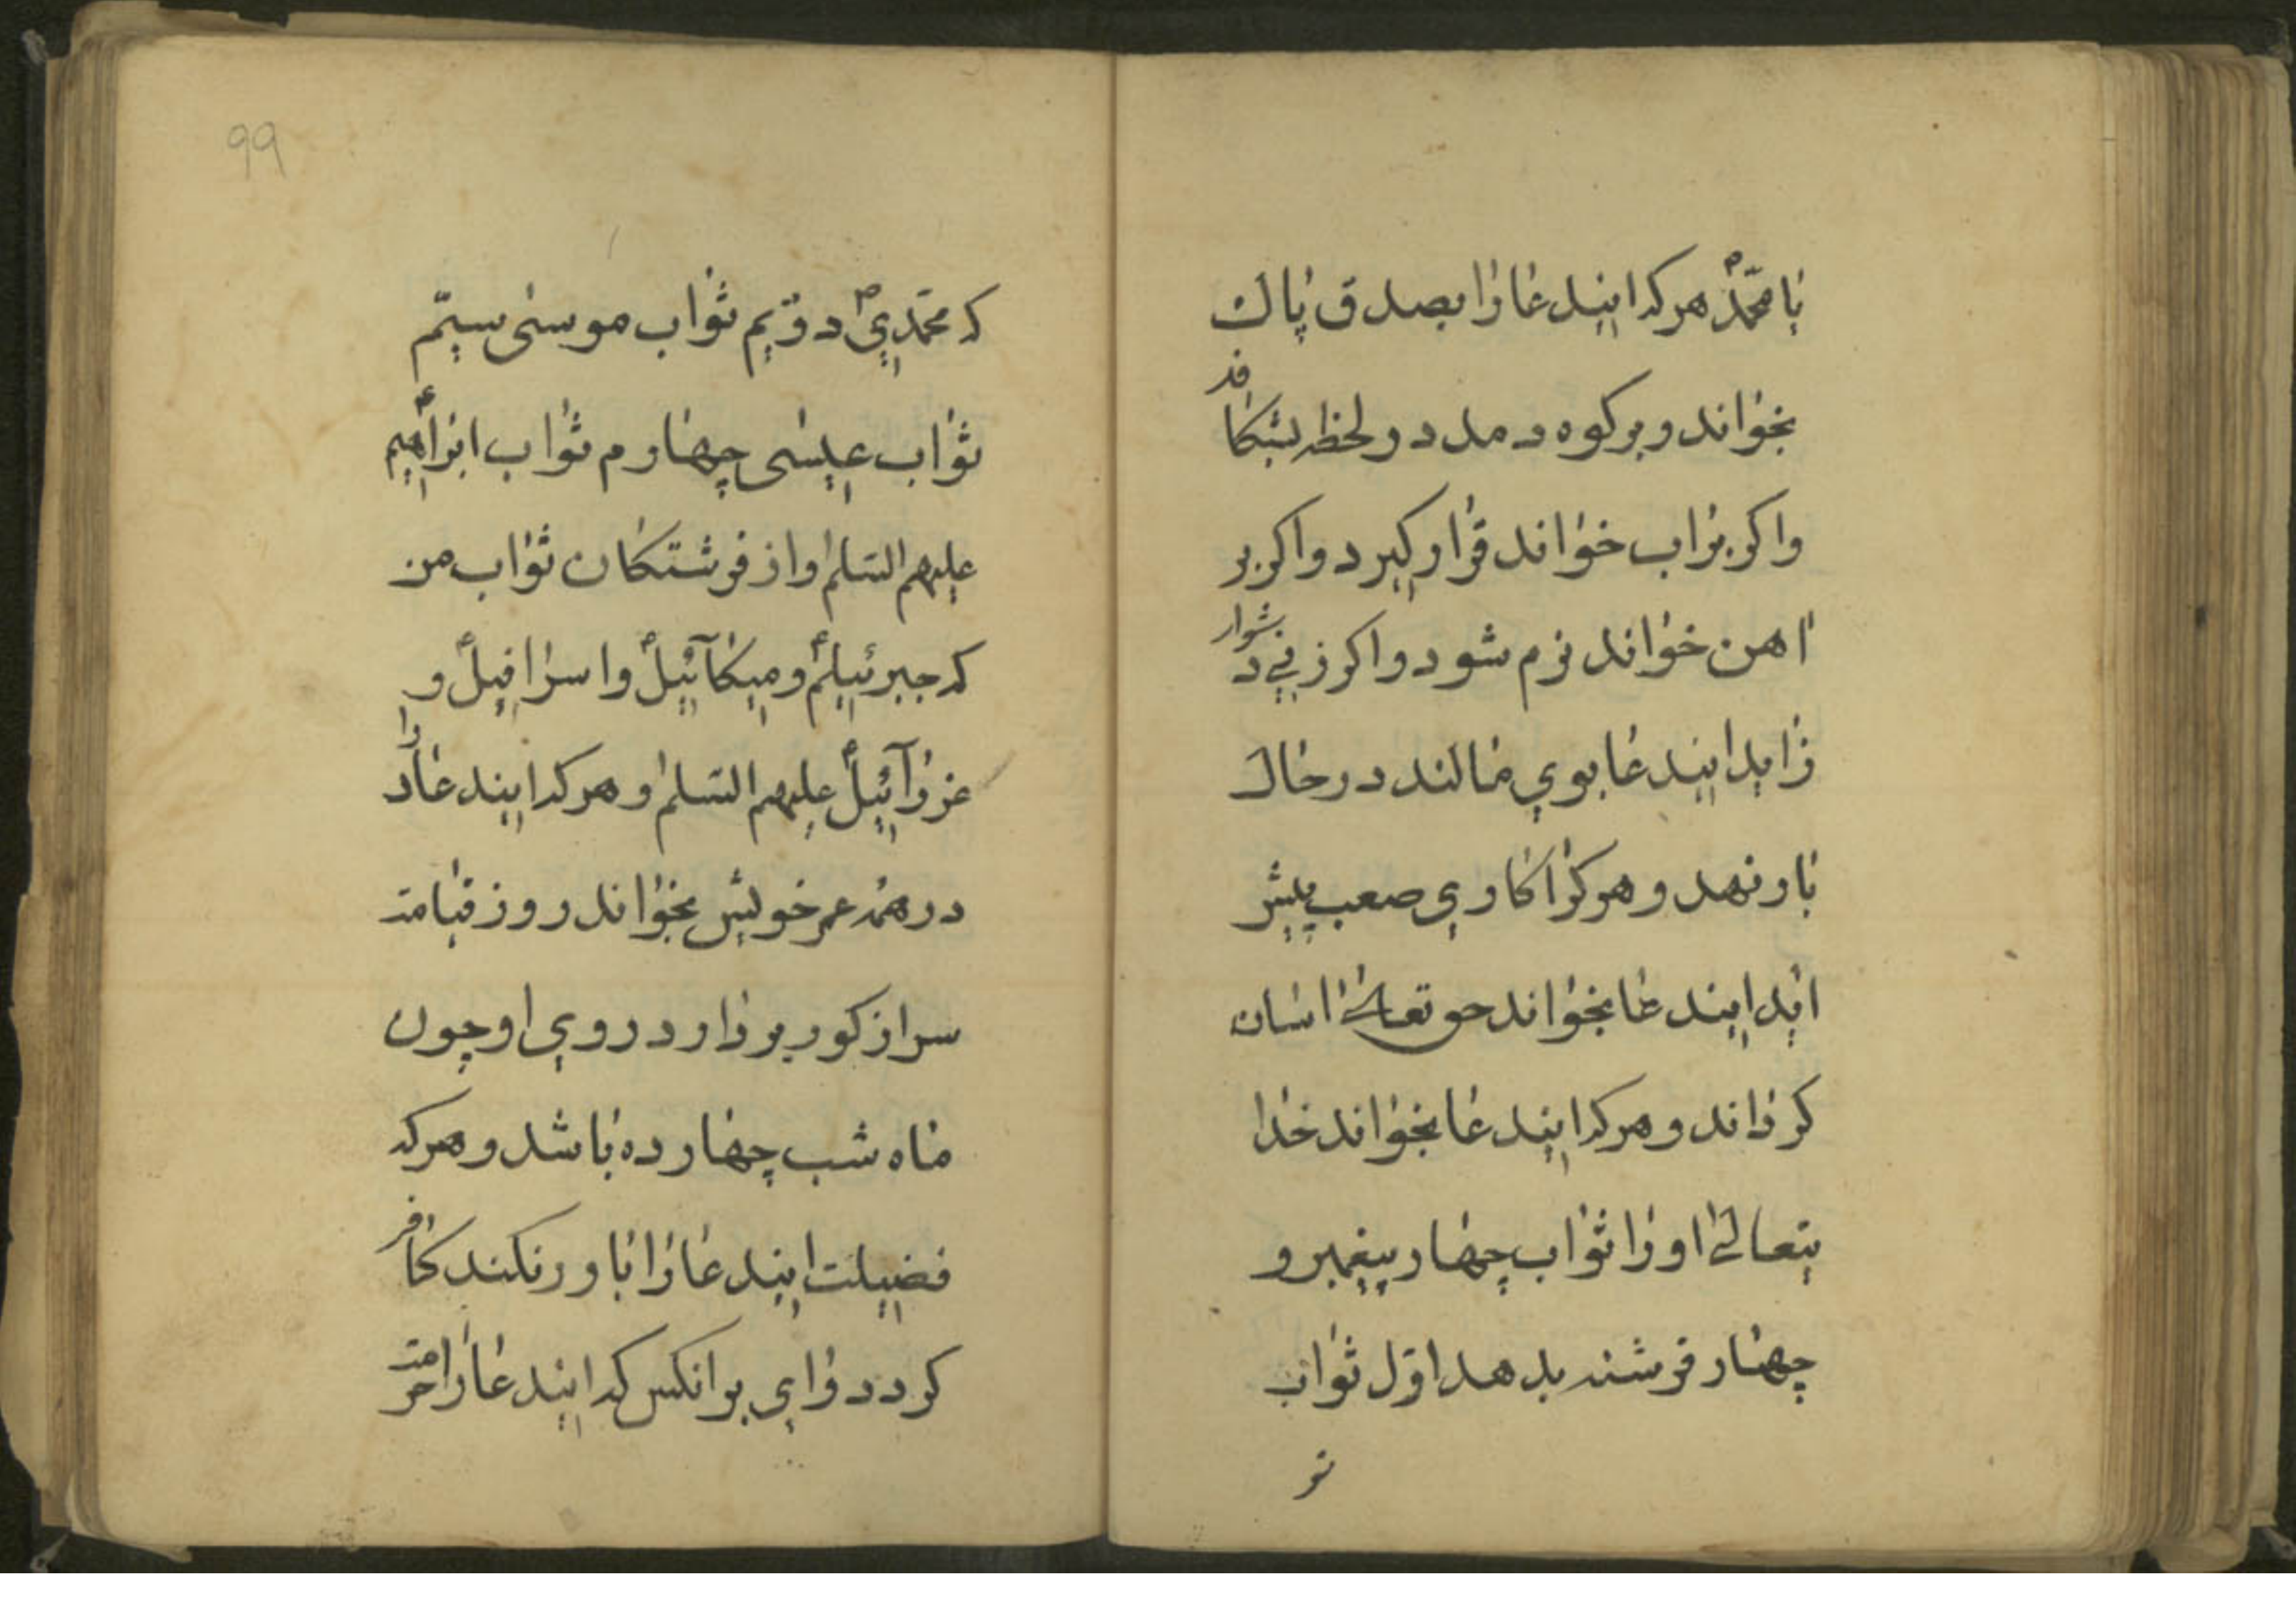 یا محمدؐ هرکه ایندعا را بصدق پاک
بخواند و برکوه دمد دو لحظه بشکافد
واکر براب خواند قرار کیرد واکر بر
اهن خواند نرم شود واکر زنی دشوار
زاید ایندعا بوی مالند در حال
بار نهد و هرکرا کاری صعب پیش
اید ایندعا بخواند حق تعالی اسان
کرداند و هرکه ایندعا بخواند خدا
یتعالی او را ثواب چهار پیغمبر و
چهار فرشته بدهد اول ثواب
تو
99
که محمدیؐ دویم ثواب موسی سیم
ثواب عیسی چهارم ثواب ابراهیمؑ
علیهم السلم و از فرشتکان ثواب من
که جبرئیلمؑ و میکائیلؑ و اسرافیلؑ و
عزرائیلؑ علیهم السلم و هرکه ایندعا را
در همه عمر خویش بخواند روز قیامت
سر از کور بردارد روی او چون
ماه شب چهارده باشد و هرکه
فضیلت ایندعا را باور نکند کافر
کردد وای بر انکس که ایندعا را حرمت